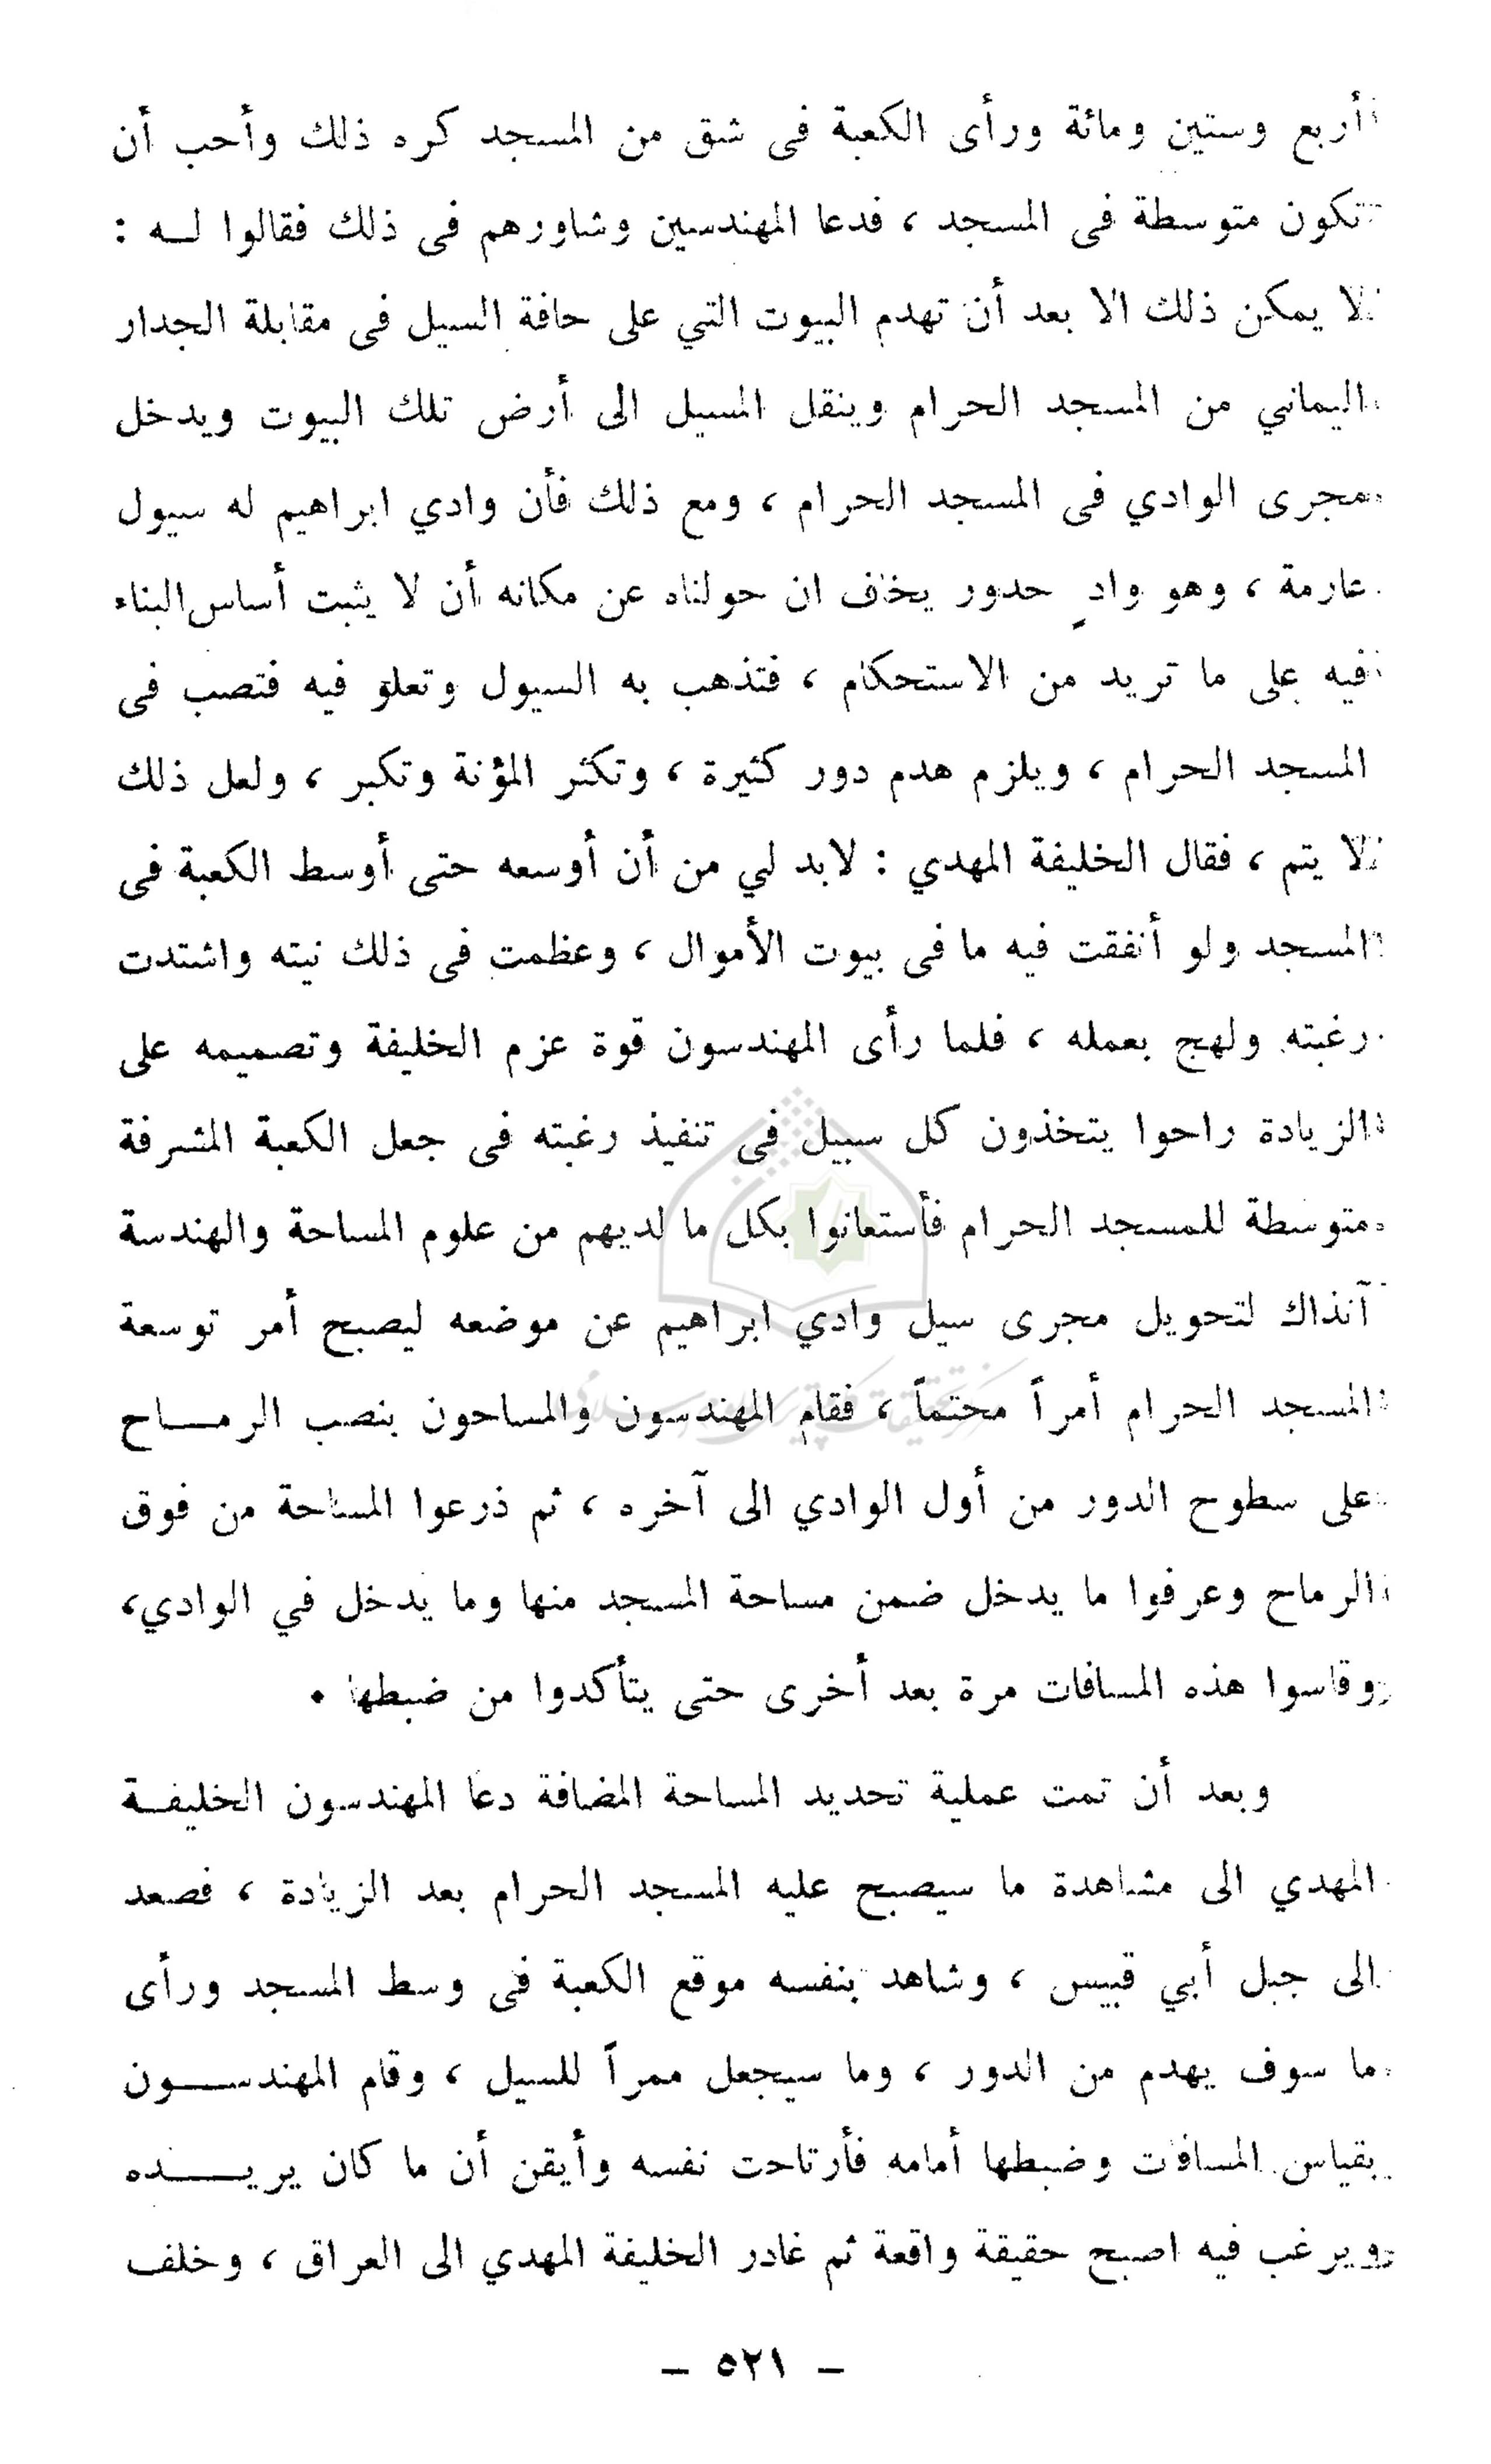 أربع وستين ومائة ورأى الكعبة فى شق من المسجد كره ذلك وأحب أن
تكون متوسطة فى المسجد ، فدعا المهندسين وشاورهم فى ذلك فقالوا لـه :
لا يمكن ذلك الا بعد أن تهدم البيوت التي على حافة السيل فى مقابلة الجدار
اليماني من المسجد الحرام وينقل المسيل الى أرض تلك البيوت ويدخل
مجرى الوادي فى المسجد الحرام ، ومع ذلك فأن وادي ابراهيم له سيول
عارمة ، وهو وادٍ حدور يخاف ان حولناه عن مكانه أن لا يثبت أساس البناء
فيه على ما تريد من الاستحكام ، فتذهب به السيول وتعلو فيه فتصب فى
المسجد الحرام ، ويلزم هدم دور كثيرة ، وتكثر المؤنة وتكبر ، ولعل ذلك
لا يتم ، فقال الخليفة المهدي : لابد لي من أن أوسعه حتى أوسط الكعبة فى
المسجد ولو أنفقت فيه ما فى بيوت الأموال ، وعظمت فى ذلك نيته واشتدت
رغبته ولهج بعمله ، فلما رأى المهندسون قوة عزم الخليفة وتصميمه على
الزيادة راحوا يتخذون كل سبيل فى تنفيذ رغبته فى جعل الكعبة المشرفة
متوسطة للمسجد الحرام فأستعانوا بكل ما لديهم من علوم المساحة والهندسة
آنذاك لتحويل مجرى سيل وادي ابراهيم عن موضعه ليصبح أمر توسعة
المسجد الحرام أمراً محتماً ، فقام المهندسون والمساحون بنصب الرمـــاح
على سطوح الدور من أول الوادي الى آخره ، ثم ذرعوا المساحة من فوق
الرماح وعرفوا ما يدخل ضمن مساحة المسجد منها وما يدخل في الوادي،
وقاسوا هذه المسافات مرة بعد أخرى حتى يتأكدوا من ضبطها .
وبعد أن تمت عملية تحديد المساحة المضافة دعا المهندسون الخليفـة
المهدي الى مشاهدة ما سيصبح عليه المسجد الحرام بعد الزيادة ، فصعد
الى جبل أبي قبيس ، وشاهد بنفسه موقع الكعبة فى وسط المسجد ورأى
ما سوف يهدم من الدور ، وما سيجعل ممراً للسيل ، وقام المهندســـون
بقياس المسافات وضبطها أمامه فأرتاحت نفسه وأيقن أن ما كان يريــــده
ويرغب فيه اصبح حقيقة واقعة ثم غادر الخليفة المهدي الى العراق ، وخلف
– ٥٢١ –